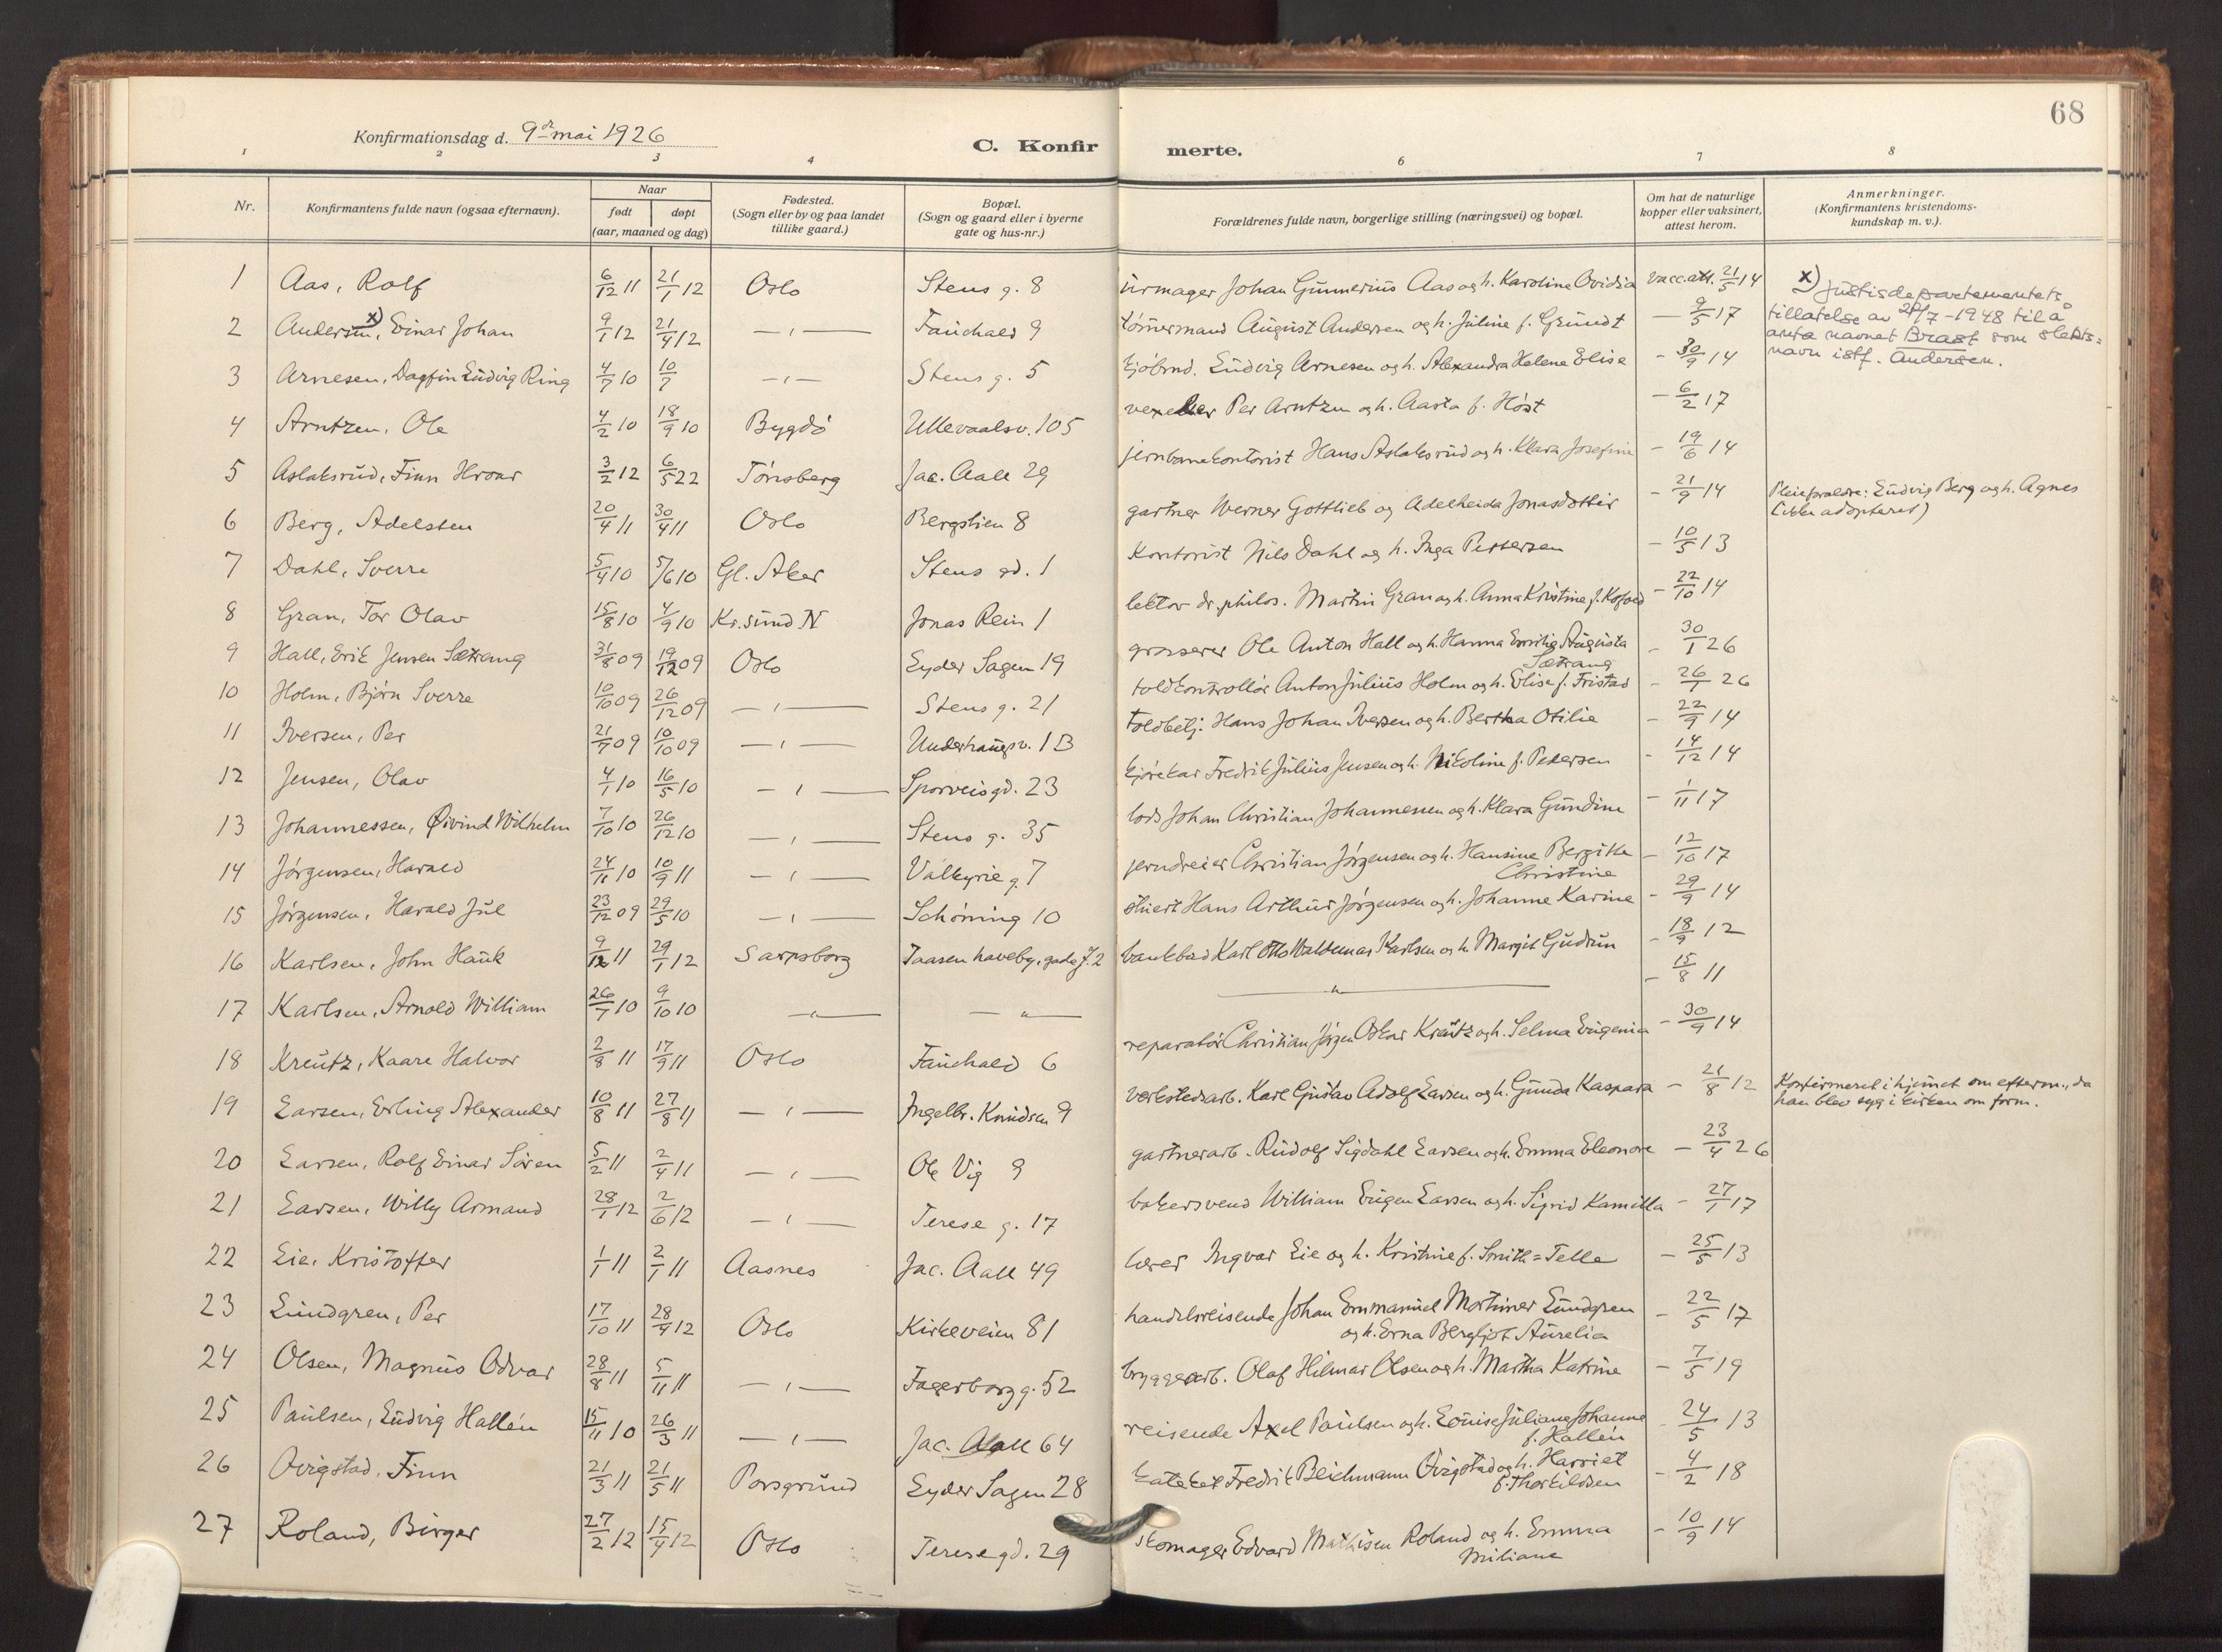 68
Konfirmationsdag d. 9de mai 1926
C. Konfirmerte.
1 2 3 4 6 7 8
Nr. Konfirmantens fulde navn (ogsaa efternavn). Naar født døpt (aar, maaned og dag) Fødested. (Sogn eller by og paa landet tillike gaard.) Bopæl. (Sogn og gaard eller i byerne gate og hus-nr.) Forældrenes fulde navn, borgerlige stilling (næringsvei) og bopæl. Om hat de naturlige kopper eller vaksinert, attest herom. Anmerkninger. (Konfirmantens kristendoms-kundskap m. v.).
1 Aas, Rolf 6/12 11 21/1 12 Oslo Stens g. 8 urmager Johan Gunnerius Aas og h. Karoline Ovidia vacc.att. 21/5 14
2 Andersen x), Einar Johan 9/1 12 21/4 12 — " — Fauchald 9 tömmermand August Andersen og h. Juline f. Grundt — 9/5 17 x) Justisdepartementets tillatelse av 29/7-1948 til å anta navnet Brast som slekts=navn istf. Andersen.
3 Arnesen, Dagfin Ludvig Ring 4/7 10 10/7 — " — Stens g. 5 kjöbmd. Ludvig Arnesen og h. Alexandra Helene Elise - 30/9 14
4 Arntzen, Ole 4/2 10 18/9 10 Bygdö Ullevaalsv. 105 Per Arntzen og h. Aasta f. Höst - 6/2 17
5 Aslaksrud, Finn Hroar 3/2 12 6/5 22 Tönsberg Jac. Aall 29 jernbanekontorist Hans Aslaksrud og h. Klara Josefine - 19/6 14
6 Berg, Adelsten 20/4 11 30/4 11 Oslo Bergslien 8 gartner Werner Gottlieb og Adelheida Jonasdottir - 21/9 14 Pleieforældre: Ludvig Berg og h. Agnes (ikke adopteret)
7 Dahl, Sverre 5/4 10 5/6 10 Gl. Aker Stens gd. 1 Kontorist Nils Dahl og h. Inga Pettersen - 10/5 13
8 Gran, Tor Olav 15/8 10 4/9 10 Kr.sund N Jonas Rein 1 lektor dr. philos. Martin Gran og h. Anna Kristine f. Kofoed - 22/10 14
9 Hall, Erik Jensen Sætrang 31/8 09 19/12 09 Oslo Eyder Sagen 19 grosserer Ole Anton Hall og h. Hanna Emilie Augusta Sætrang - 30/1 26
10 Holm, Bjørn Sverre 10/10 09 26/12 09 — " — Stens g. 21 toldkontrollör Anton Julius Holm og h. Elise f. Fristad - 26/1 26
11 Iversen, Per 21/7 09 10/10 09 — " — Underhaugsv. 1B toldbetj. Hans Johan Iversen og h. Bertha Otilie - 22/9 14
12 Jensen, Olav 4/1 10 16/5 10 — " — Sporveisgd. 23 kjörekar Fredrik Julius Jensen og h. Nikoline f. Pedersen - 14/12 14
13 Johannessen, Øivind Wilhelm 7/10 10 26/12 10 — " — Stens g. 35 lods Johan Christian Johannessen og h. Klara Gundine - 1/11 17
14 Jörgensen, Harald 24/11 10 10/9 11 — " — Valkyrie g. 7 jerndreier Christian Jörgensen og h. Hansine Bergitte Christine - 12/10 17
15 Jörgensen, Harald Jul 23/12 09 29/5 10 — " — Schöning 10 stuert Hans Arthur Jörgensen og h. Johanne Karine - 29/9 14
16 Karlsen, John Hauk 9/12 11 29/1 12 Sarpsborg Taasen haveby, gade J. 2 bankbud Karl Otto Valdemar Karlsen og h. Margit Gudrun - 18/9 12
17 Karlsen, Arnold William 26/7 10 9/10 10 — " — — " — — " — - 15/8 11
18 Kreutz, Kaare Halvor 2/8 11 17/9 11 Oslo Fauchald 6 reparatör Christian Jörgen Oskar Kreutz og h. Selma Eugenia - 30/9 14
19 Larsen, Erling Alexander 10/8 11 27/8 11 — " — Ingelbr. Knudsen 9 verkstedsarb. Karl Gustav Adolf Larsen og h. Gunda Kaspara - 21/8 12 Konfirmeret i hjemmet om efterm., da han blev syg i kirken om form.
20 Larsen, Rolf Einar Sören 5/2 11 2/4 11 — " — Ole Vig 9 gartnerarb. Rudolf Sigdahl Larsen og h. Emma Eleonore - 23/4 26
21 Larsen, Willy Armand 28/1 12 2/6 12 — " — Terese g. 17 bakersvend William Eugen Larsen og h. Sigrid Kamilla - 27/1 17
22 Lie, Kristoffer 1/1 11 2/1 11 Aasnes Jac. Aall 49 lærer Ingvar Lie og h. Kristine f. Smith=Telle - 25/5 13
23 Lundgren, Per 17/10 11 28/4 12 Oslo Kirkeveien 81 handelsreisende Johan Emmanuel Mortimer Lundgren og h. Erna Bergljot Aurelia - 22/5 17
24 Olsen, Magnus Odvar 28/8 11 5/11 11 — " — Fagerborg g. 52 bryggearb. Olaf Hilmar Olsen og h. Martha Katrine - 7/5 19
25 Paulsen, Ludvig Hallén 15/11 10 26/3 11 — " — Jac. Aall 64 reisende Axel Paulsen og h. Louise Juliane Johanne f. Hallén - 24/5 13
26 Qvigstad, Finn 21/3 11 21/5 11 Porsgrund Eyder Sagen 28 kateket Fredrik Beichmann Qvigstad og h. Harriet f. Thorkildsen - 4/2 18
27 Roland, Birger 27/2 12 15/4 12 Oslo Terese gd. 29 skomager Edvard Mathisen Roland og h. Emma Miliane - 10/9 14